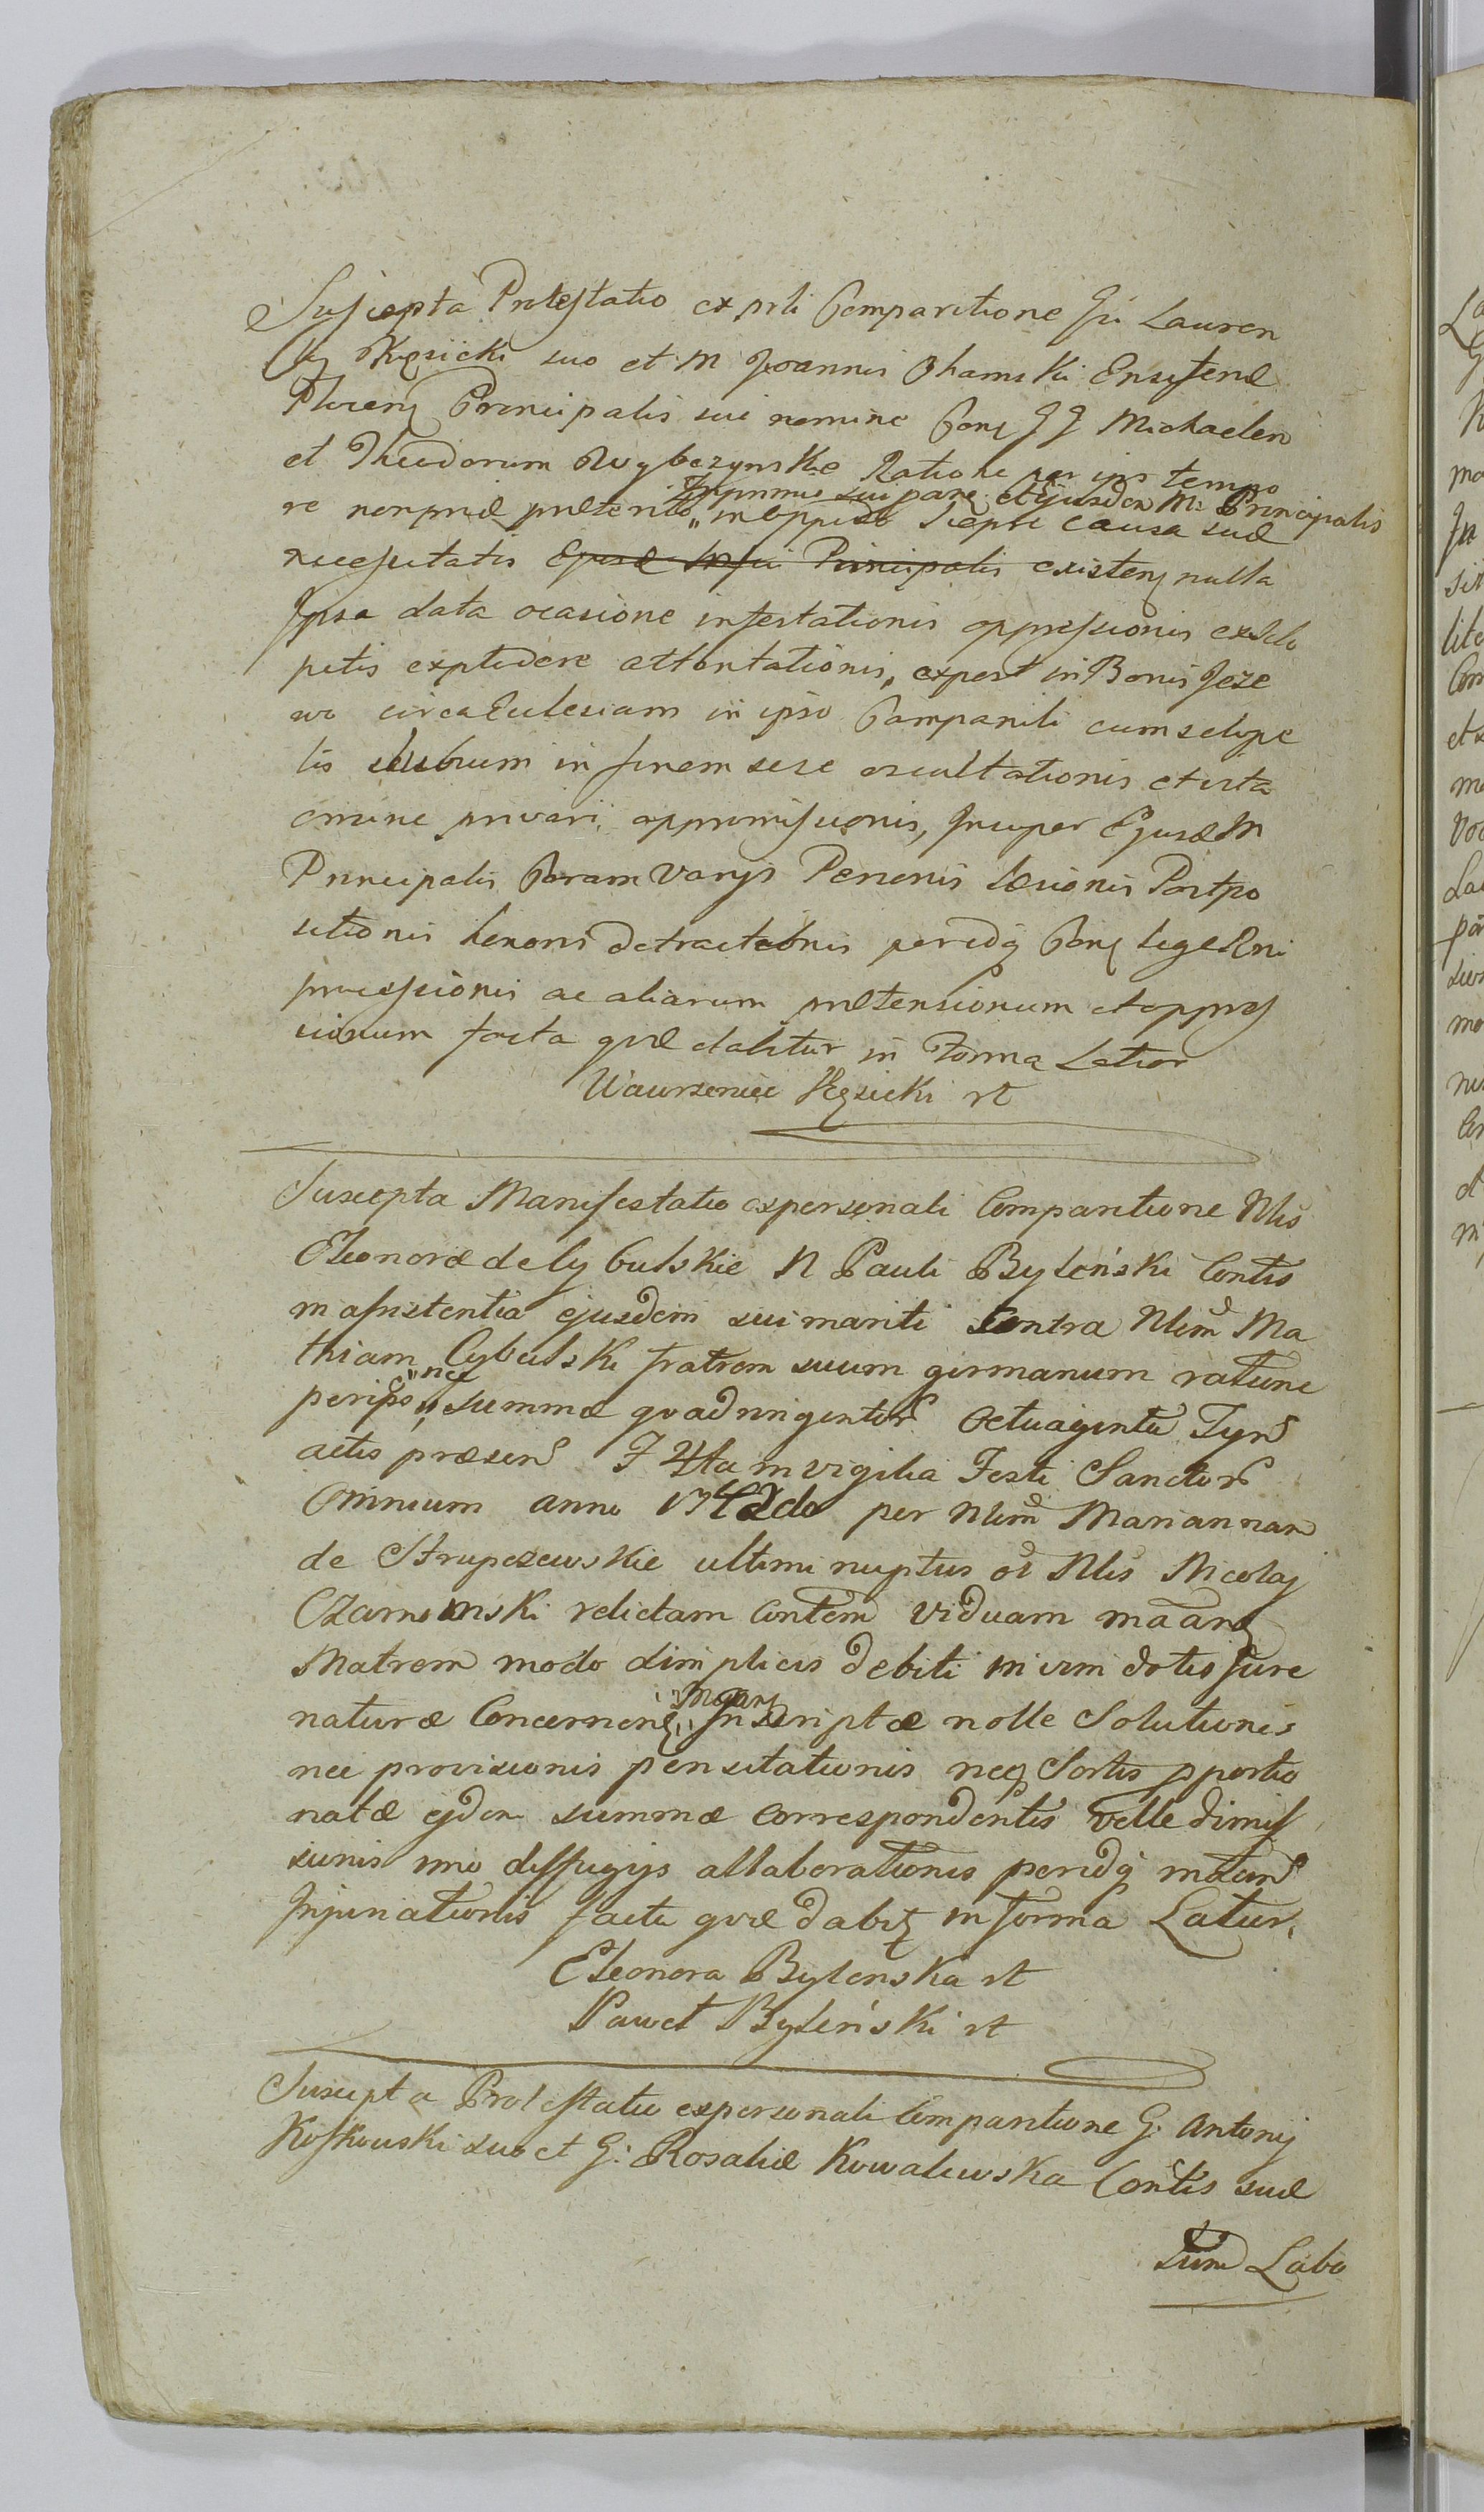 Suscepta Protestatio ex prli Comparitione Gsi Lauren
tij Kęsicki suo et M Joannis Chamski Ensiferi
Plocen Principalis sui nomine Con GG Michaelem
et Theodorum Rwybczynskie Ratione per ipsos tempo
Inprimis sui parte et Ejusdem M: Principalis
re non pridem præterito in oppido Sieprc causa suæ
necessitatis Ejusd M sui Principalis existen nulla
Ipsa data ocasione infestationis oppressionis ex sclo
petis explodere attentationis, expost in Bonis Jeze
wo circa Ecclesiam in ipso Campanili cum sclope
tis in finem sese oscultationis et vita
omine privari appromissionis, Insuper Ejusd M
Principalis Coram varys Personis Læsionis Postpo
sitionis honoris detractationis per idq Con lege Rni
processionis ac aliarum prætensionum et oppres
sionum facta quæ dabitur in Forma Latior
Wawrzeniec Kęsicki rt
Suscepta Manifestatio ex personali Comparitione Nlis
Eleonoræ de Cybulskie N Pauli Byleński Contis
in assistentia ejusdem sui mariti Contra Nlem Ma
thiam Cybulski fratrem suum germanum ratione
per ipso summæ quadringentor Octuaginta Tynf
actis præsen F 4ta in vigilia Festi Sanctor
Omnium anno 1742do per Nlem Mariannam
de Strupczewskie ultimi nuptus ol Nlis Nicolaj
Czarnomski relictam Contem viduam maan
Matrem modo simplicis debiti in vim dotis Jure
naturæ Concernen Maan Inscriptæ nolle Solutionis
nec provisionis pensitationis neq Sortis pportio
natæ ejdem summæ correspondentis velle dimis
sionis imo diffugijs allaborationis per idq
Injuriationis facta quæ dabit in forma Latiori
Eleonora Bylenska rt
Paweł Byleński rt
Suscepta Protestatio ex personali Comparitione G: Antonij
Koskowski suo et G: Rosaliæ Kowalewska Contis suæ
Sum Labo